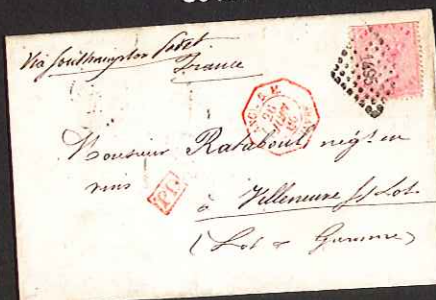 Via Southampton
France
Monsieur Rataboul négt en
vins
P.D.
à Villeneuve s/ Lot
(Lot & Garonne)